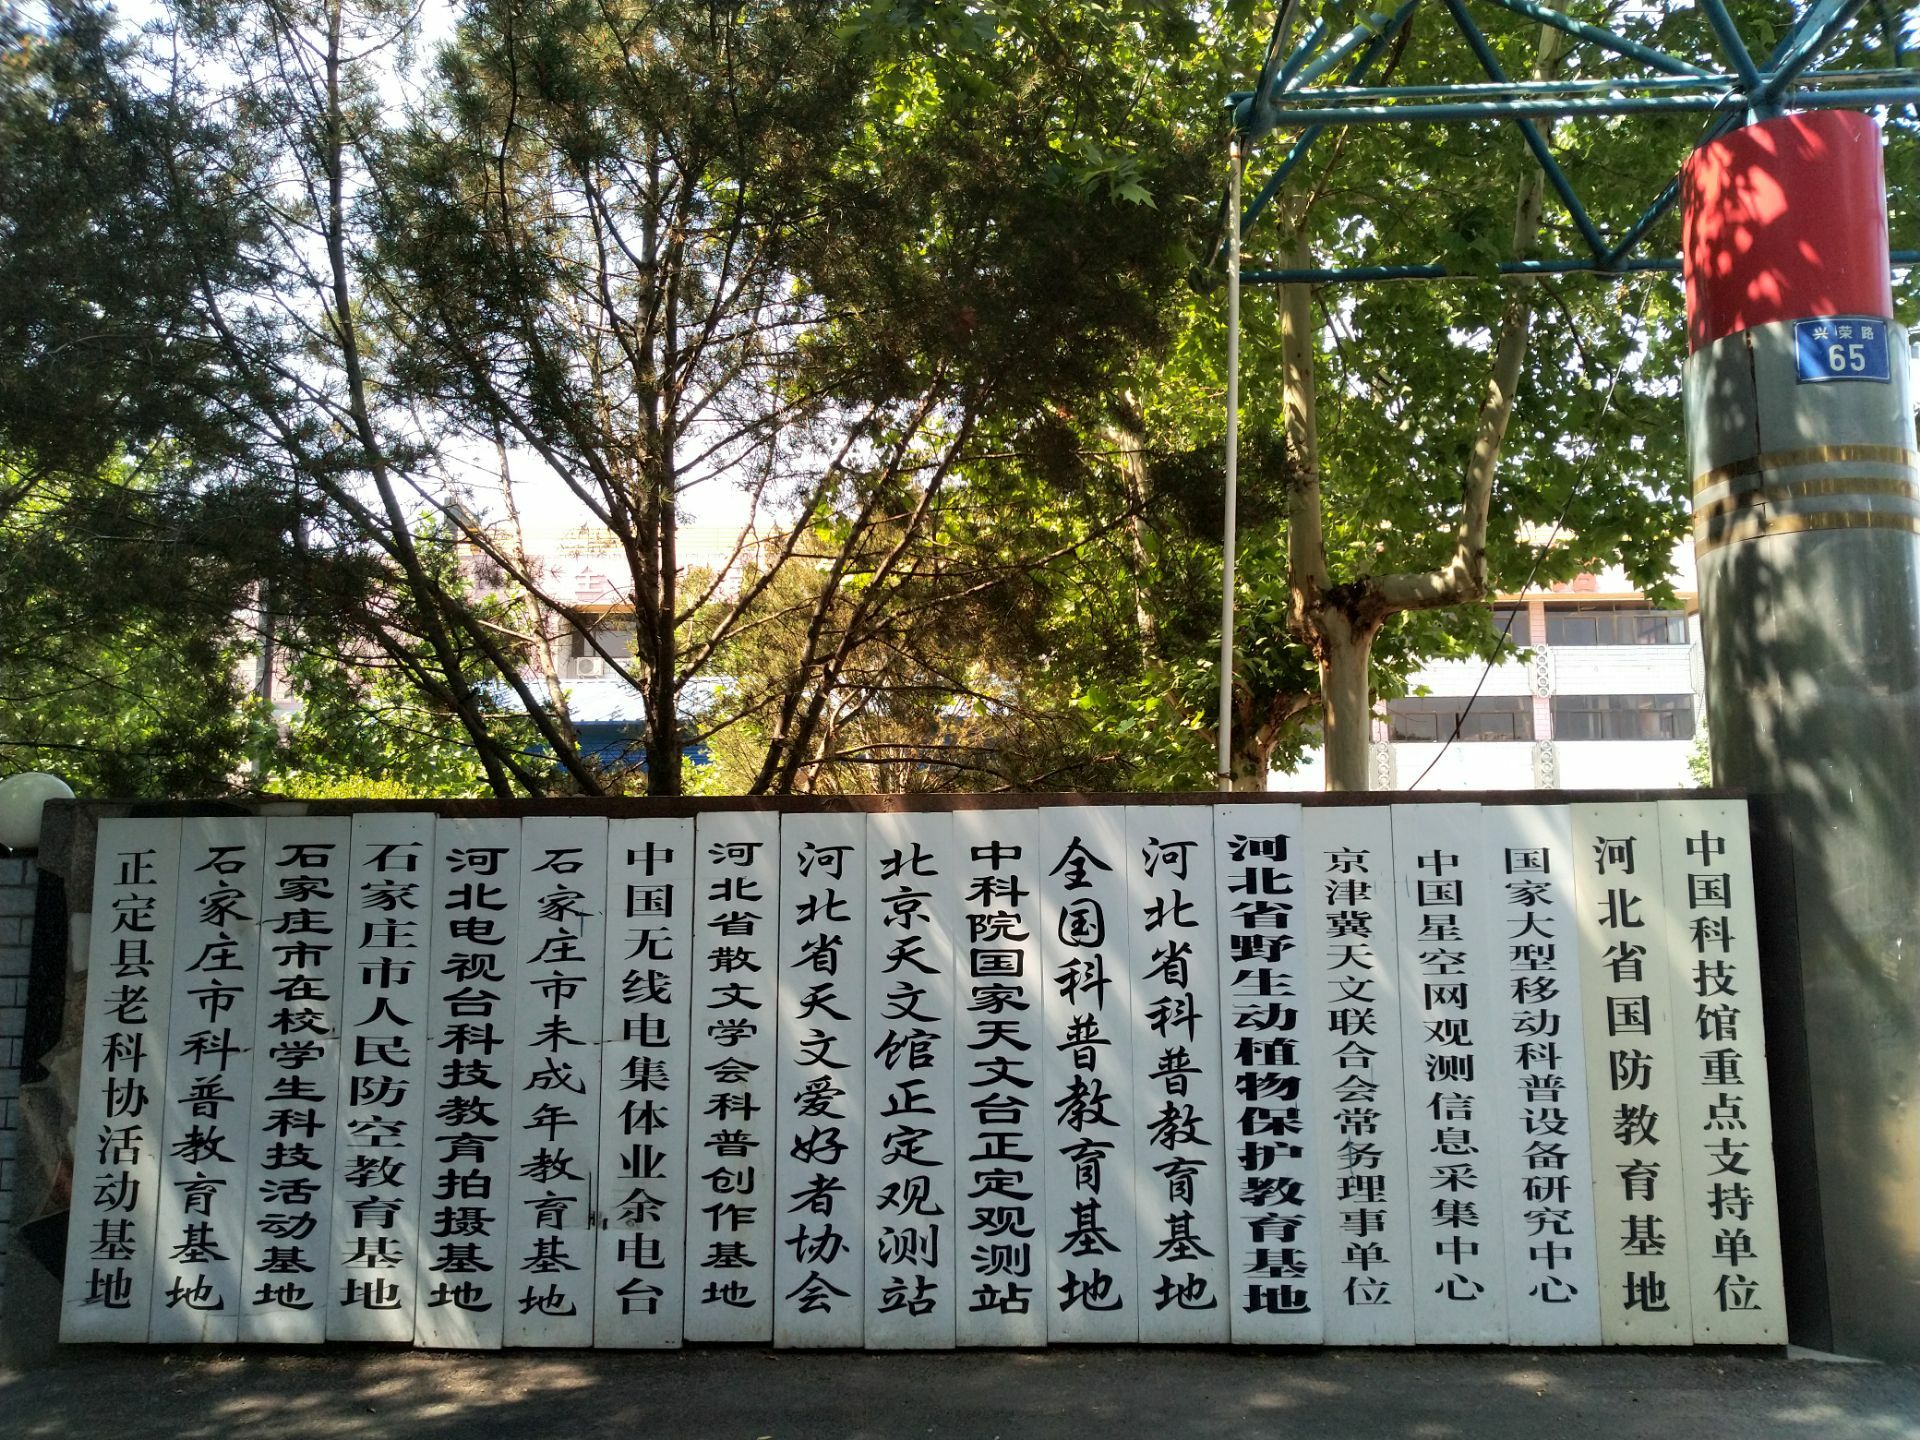 兴荣路
65
正定县老科协活动基地
石家庄市科普教育基地
石家庄市在校学生科技活动基地
石家庄市人民防空教育基地
河北电视台科技教育拍摄基地
石家庄市未成年教育基地
中国无线电集体业余电台
河北省散文学会科普创作基地
河北省天文爱好者协会
北京天文馆正定观测站
中科院国家天文台正定观测站
全国科普教育基地
河北省科普教育基地
河北省野生动植物保护教育基地
京津冀天文联合会常务理事单位
中国星空网观测信息采集中心
国家大型移动科普设备研究中心
河北省国防教育基地
中国科技馆重点支持单位